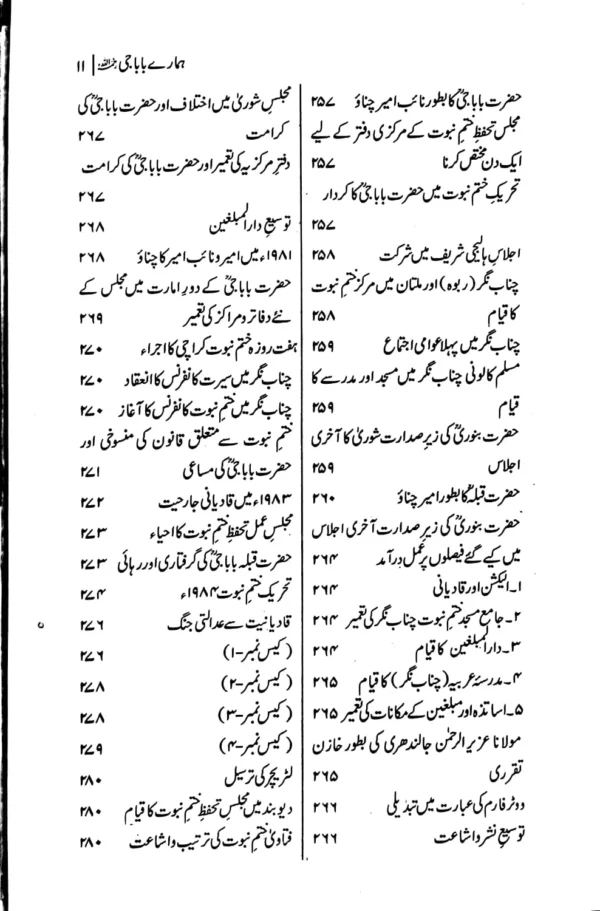 ہمارے بابا جی رحمہ اللہ | ۱۱
حضرت بابا جیؒ کا بطور نائب امیر چناؤ ۲۵۷
مجلس تحفظ ختم نبوت کے مرکزی دفتر کے لیے
ایک دن مختص کرنا ۲۵۷
تحریک ختم نبوت میں حضرت بابا جیؒ کا کردار
۲۵۷
اجلاس ہالیجی شریف میں شرکت ۲۵۸
چناب نگر (ربوہ) اور ملتان میں مرکز ختم نبوت
کا قیام ۲۵۸
چناب نگر میں پہلا عوامی اجتماع ۲۵۹
مسلم کالونی چناب نگر میں مسجد اور مدرسے کا
قیام ۲۵۹
حضرت بنوریؒ کی زیرِ صدارت شوریٰ کا آخری
اجلاس ۲۵۹
حضرت قبلہؒ کا بطور امیر چناؤ ۲۶۰
حضرت بنوریؒ کی زیرِ صدارت آخری اجلاس
میں کیے گئے فیصلوں پر عمل درآمد ۲۶۴
۱۔ الیکشن اور قادیانی ۲۶۴
۲۔ جامع مسجد ختم نبوت چناب نگر کی تعمیر ۲۶۴
۳۔ دار المبلغین کا قیام ۲۶۴
۴۔ مدرسۂ عربیہ (چناب نگر) کا قیام ۲۶۵
۵۔ اساتذہ اور مبلغین کے مکانات کی تعمیر ۲۶۵
مولانا عزیز الرحمٰن جالندھری کی بطور خازن
تقرری ۲۶۵
ووٹر فارم کی عبارت میں تبدیلی ۲۶۶
توسیعِ نشر و اشاعت ۲۶۶
مجلسِ شوریٰ میں اختلاف اور حضرت بابا جیؒ کی
کرامت ۲۶۷
دفتر مرکزیہ کی تعمیر اور حضرت بابا جیؒ کی کرامت
۲۶۷
توسیع دار المبلغین ۲۶۸
۱۹۸۱ء میں امیر و نائب امیر کا چناؤ ۲۶۸
حضرت بابا جیؒ کے دورِ امارت میں مجلس کے
نئے دفاتر و مراکز کی تعمیر ۲۶۹
ہفت روزہ ختم نبوت کراچی کا اجراء ۲۷۰
چناب نگر میں سیرت کانفرنس کا انعقاد ۲۷۰
چناب نگر میں ختم نبوت کانفرنس کا آغاز ۲۷۰
ختمِ نبوت سے متعلق قانون کی منسوخی اور
حضرت بابا جیؒ کی مساعی ۲۷۱
۱۹۸۳ء میں قادیانی جارحیت ۲۷۲
مجلس عمل تحفظ ختم نبوت کا احیاء ۲۷۳
حضرت قبلہ بابا جیؒ کی گرفتاری اور رہائی ۲۷۳
تحریک ختم نبوت ۱۹۸۴ء ۲۷۴
قادیانیت سے عدالتی جنگ ۲۷۶
(کیس نمبر-۱) ۲۷۶
(کیس نمبر-۲) ۲۷۸
(کیس نمبر-۳) ۲۷۸
(کیس نمبر-۴) ۲۷۹
لٹریچر کی ترسیل ۲۸۰
دیوبند میں مجلس تحفظ ختم نبوت کا قیام ۲۸۰
فتاویٰ ختم نبوت کی ترتیب و اشاعت ۲۸۰